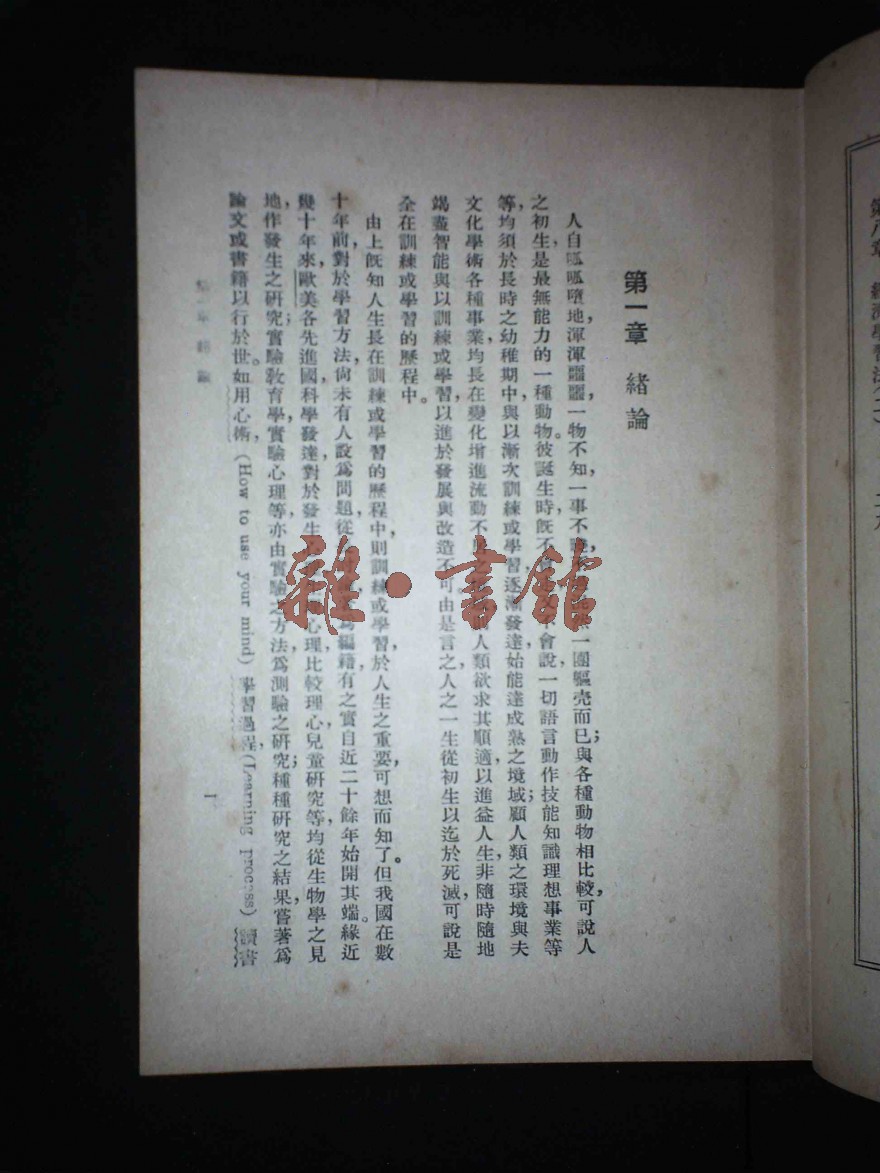 第一章 緒論
人自呱呱墮地，渾渾噩噩，一物不知，一事不 一團軀壳而已；與各種動物相比較，可說人
之初生，是最無能力的一種動物。彼誕生時，旣不 會說，一切語言動作技能知識理想事業等
等，均須於長時之幼稚期中，與以漸次訓練或學習，逐漸發達，始能達成熟之境域；顧人類之環境與夫
文化學術各種事業，均長在變化增進流動不 人類欲求其順適，以進益人生，非隨時隨地，
竭盡智能，與以訓練或學習，以進於發展與改造不可。由是言之，人之一生，從初生以迄於死滅，可說是
全在訓練或學習的歷程中。
由上旣知人生長在訓練或學習的歷程中，則訓練或學習於人生之重要，可想而知了。但我國在數
十年前，對於學習方法，尙未有人設爲問題，從 爲編籍有之，實自近二十餘年始開其端。緣近
幾十年來，歐美各先進國科學發達，對於發生 心理，比較理心，兒童研究等，均從生物學之見
地，作發生之研究；實驗敎育學，實驗心理等，亦由實驗之方法，爲測驗之研究；種種研究之結果，嘗著爲
論文或書籍以行於世。如用心術，(How to use your mind) 學習過程，(Learning process) 讀書
第一章 緒論
1
雜·書館
第八章